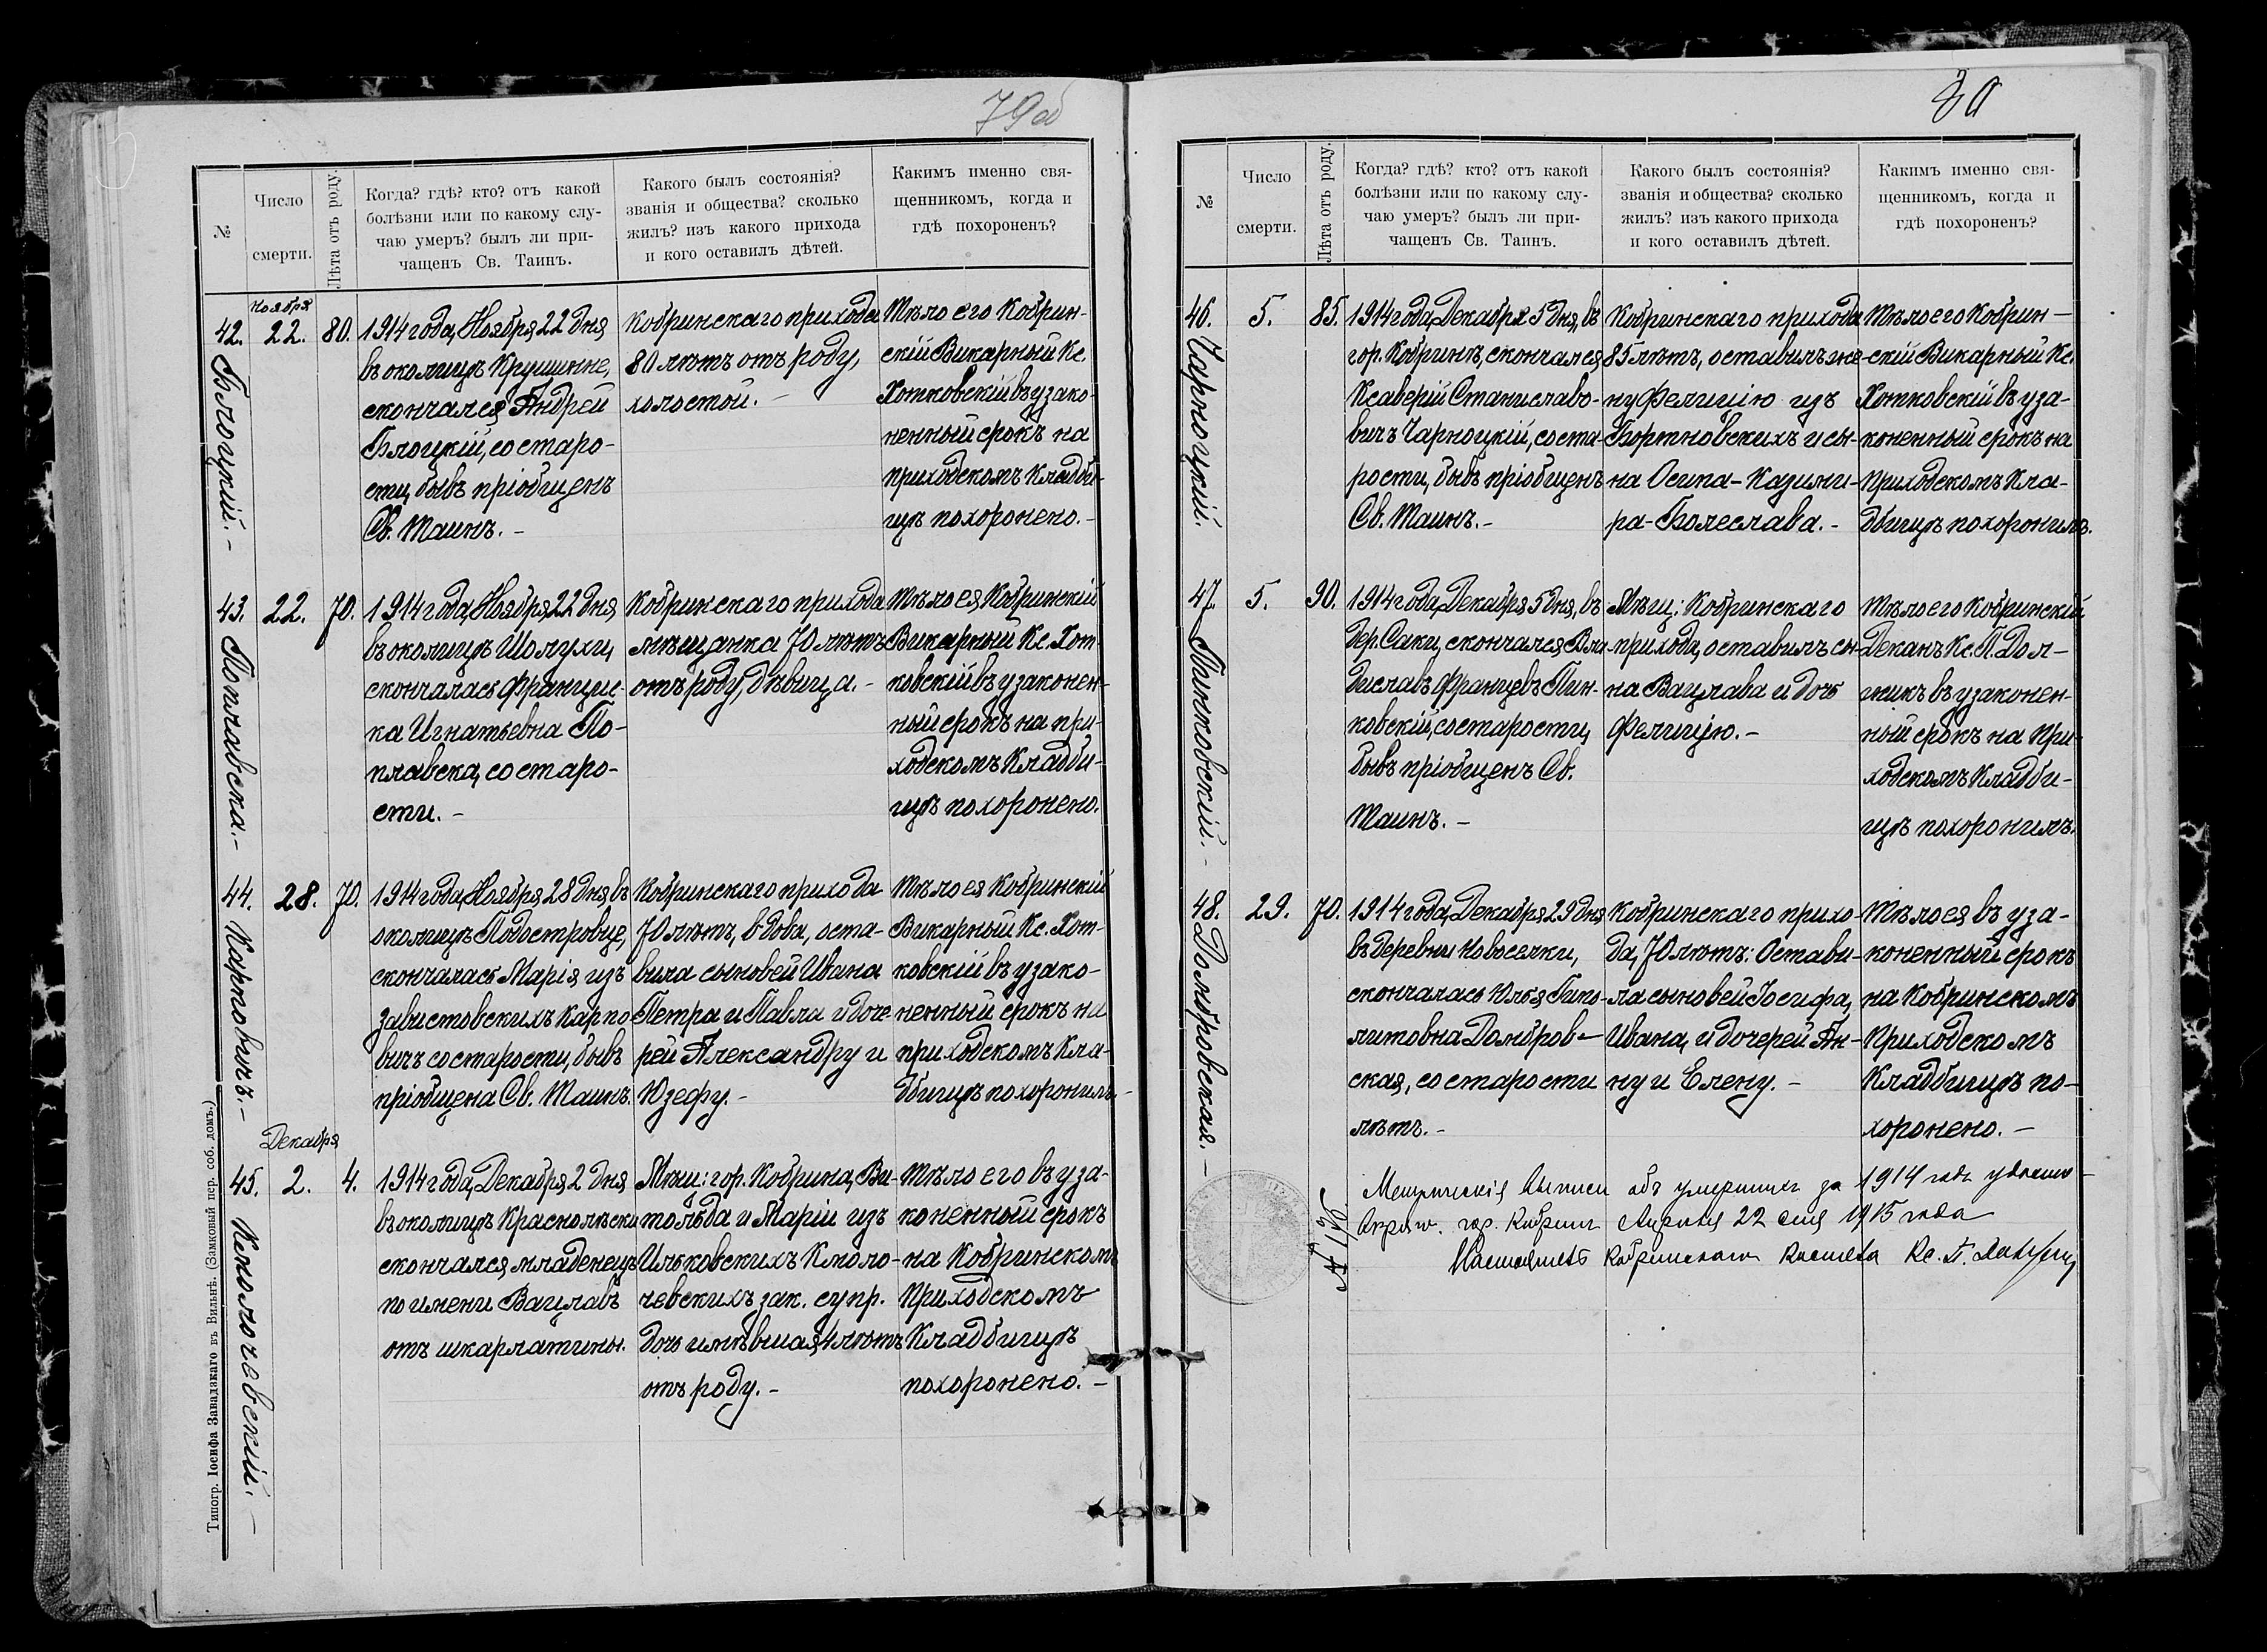 79об
№
Число
смерти.
Лѣта отъ роду.
Когда? гдѣ? кто? отъ какой
болѣзни или по какому слу-
чаю умеръ? былъ ли при-
чащенъ Св. Таинъ.
Какого былъ состоянія?
званія и общества? сколько
жилъ? изъ какого прихода
и кого оставилъ дѣтей.
Каким именно свя-
щенникомъ, когда и
гдѣ похороненъ?
42.
Блоцкій. -
Ноября
22.
80.
1914 года, Ноября 22 дня
въ околицѣ Крушине,
скончался Андрей
Блоцкій, со старо-
сти, бывъ пріобщенъ
Св. Таинъ. -
Кобринскаго прихода
80 лѣтъ отъ роду,
холостой. -
Тѣло его Кобрин-
скій Викарный Кс.
Хотковскій въ узако-
ненный срокъ на
приходскомъ Кладби-
щѣ похоронено. -
43.
Поплавска. -
22.
70.
1914 года, Ноября 22 дня
въ околицѣ Шолухи,
скончалась Францис-
ка Игнатьевна По-
плавска, со старо-
сти. -
Кобринскаго прихода
мѣщанка 70 лѣтъ
отъ роду, дѣвица. -
Тѣло ея Кобринскій
Викарный Кс. Хот-
ковскій въ узаконен-
ный срокъ на при-
ходскомъ Кладби-
щѣ похоронено.
44.
Карповичъ. -
28.
70.
1914 года, Ноября 28 дня въ
околицѣ Подостровце,
скончалась Марія изъ
Завистовскихъ Карпо
вичъ со старости, бывъ
пріобщена Св. Таинъ.
Кобринскаго прихода
70 лѣтъ, вдова, оста-
вила сыновей Ивана
Петра и Павла и доче
рей Александру и
Юзефу. -
Тѣло ея Кобринскій
Викарный Кс. Хот-
ковскій въ узако-
ненный срокъ на
приходскомъ Кла-
дбищѣ похоронилъ. -
45.
Клолочевскій. -
Декабря
2.
4.
1914 года, Декабря 2 дня
въ околицѣ Краснолѣски
скончался младенецъ
по имени Вацлавъ
отъ шкарлатины.
Мѣщ: гор. Кобрина, Ви-
тольда и Маріи изъ
Ильковскихъ Клоло-
чевскихъ зак. супр.
дочь имѣвшая 4 лѣтъ
отъ роду. -
Тѣло его въ уза-
коненный срокъ
на Кобринскомъ
Приходскомъ
Кладбищѣ
похоронено. -
Типогр. Іосифа Завадзкаго въ Вильнѣ. (Замковый пер. соб. домъ.)
80
№
Число
смерти.
Лѣта отъ роду.
Когда? гдѣ? кто? отъ какой
болѣзни или по какому слу-
чаю умеръ? былъ ли при-
чащенъ Св. Таинъ.
Какого былъ состоянія?
званія и общества? сколько
жилъ? изъ какого прихода
и кого оставилъ дѣтей.
Какимъ именно свя-
щенникомъ, когда и
гдѣ похороненъ?
46.
Чарноцкій. -
5.
85.
1914 года, Декабря 5 дня, въ
гор. Кобринѣ, скончался
Ксаверій Станиславо-
вичъ Чарноцкій, со ста-
рости, бывъ пріобщенъ
Св. Таинъ. -
Кобринскаго прихода
85 лѣтъ, оставилъ же-
ну Фелицію изъ
Бортновскихъ и сы-
на Осипа-Казими-
ра-Болеслава. -
Тѣло его Кобрин-
скій Викарный Кс.
Хотковскій въ уза-
коненный срокъ на
Приходскомъ Кла-
дбищѣ похоронилъ.
47.
Пинковскій. -
5.
90.
1914 года, Декабря 5 дня, въ
дер. Саки, скончался Вла-
диславъ Францевъ Пин-
ковскій, со старости,
бывъ пріобщенъ Св.
Таинъ. -
Мѣщ: Кобринскаго
прихода, оставилъ сы-
на Вацлава и дочь
Фелицію. -
Тѣло его Кобринскій
Деканъ Кс. П. Дол-
жикъ въ узаконен-
ный срокъ на При-
ходскомъ Кладби-
щѣ похоронилъ.
48.
Домбровская. -
29.
70.
1914 года, Декабря 29 дня
въ деревни Новоселки,
скончалась Юлія Гипо-
литовна Домбров-
ская, со старости
лѣтъ. -
Кобринскаго прихо-
да, 70 лѣтъ: Остави-
ла сыновей Іосифа,
Ивана, и дочерей Ан-
ну и Елену. -
Тѣло ея въ уза-
коненный срокъ
на Кобринскомъ
Приходскомъ
Кладбищѣ по-
хоронено. -
Метрическія выписи объ умершихъ за 1914 годъ
гор. Кобринъ 22 дня 1915 года
Настоятель Кобринскаго Костела Кс. П.